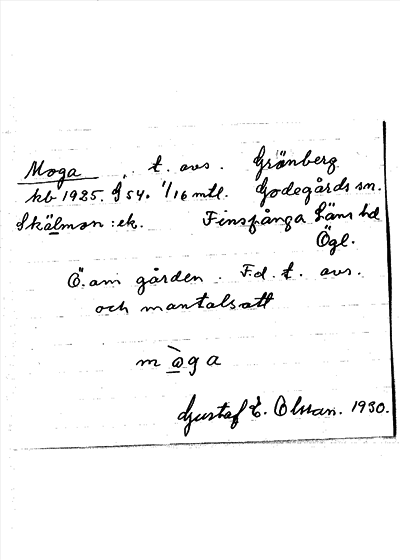 Moga t. avs. Grönberg
kb 1925. § 54. 1/16 mtl. Godegårds sn.
Skälmon: ek. Finspånga Läns hd
Ögl.
Ö. om gården. F.d. t. avs.
och mantalsatt
m ò̲ g a
Gustaf E. Olsson. 1930.